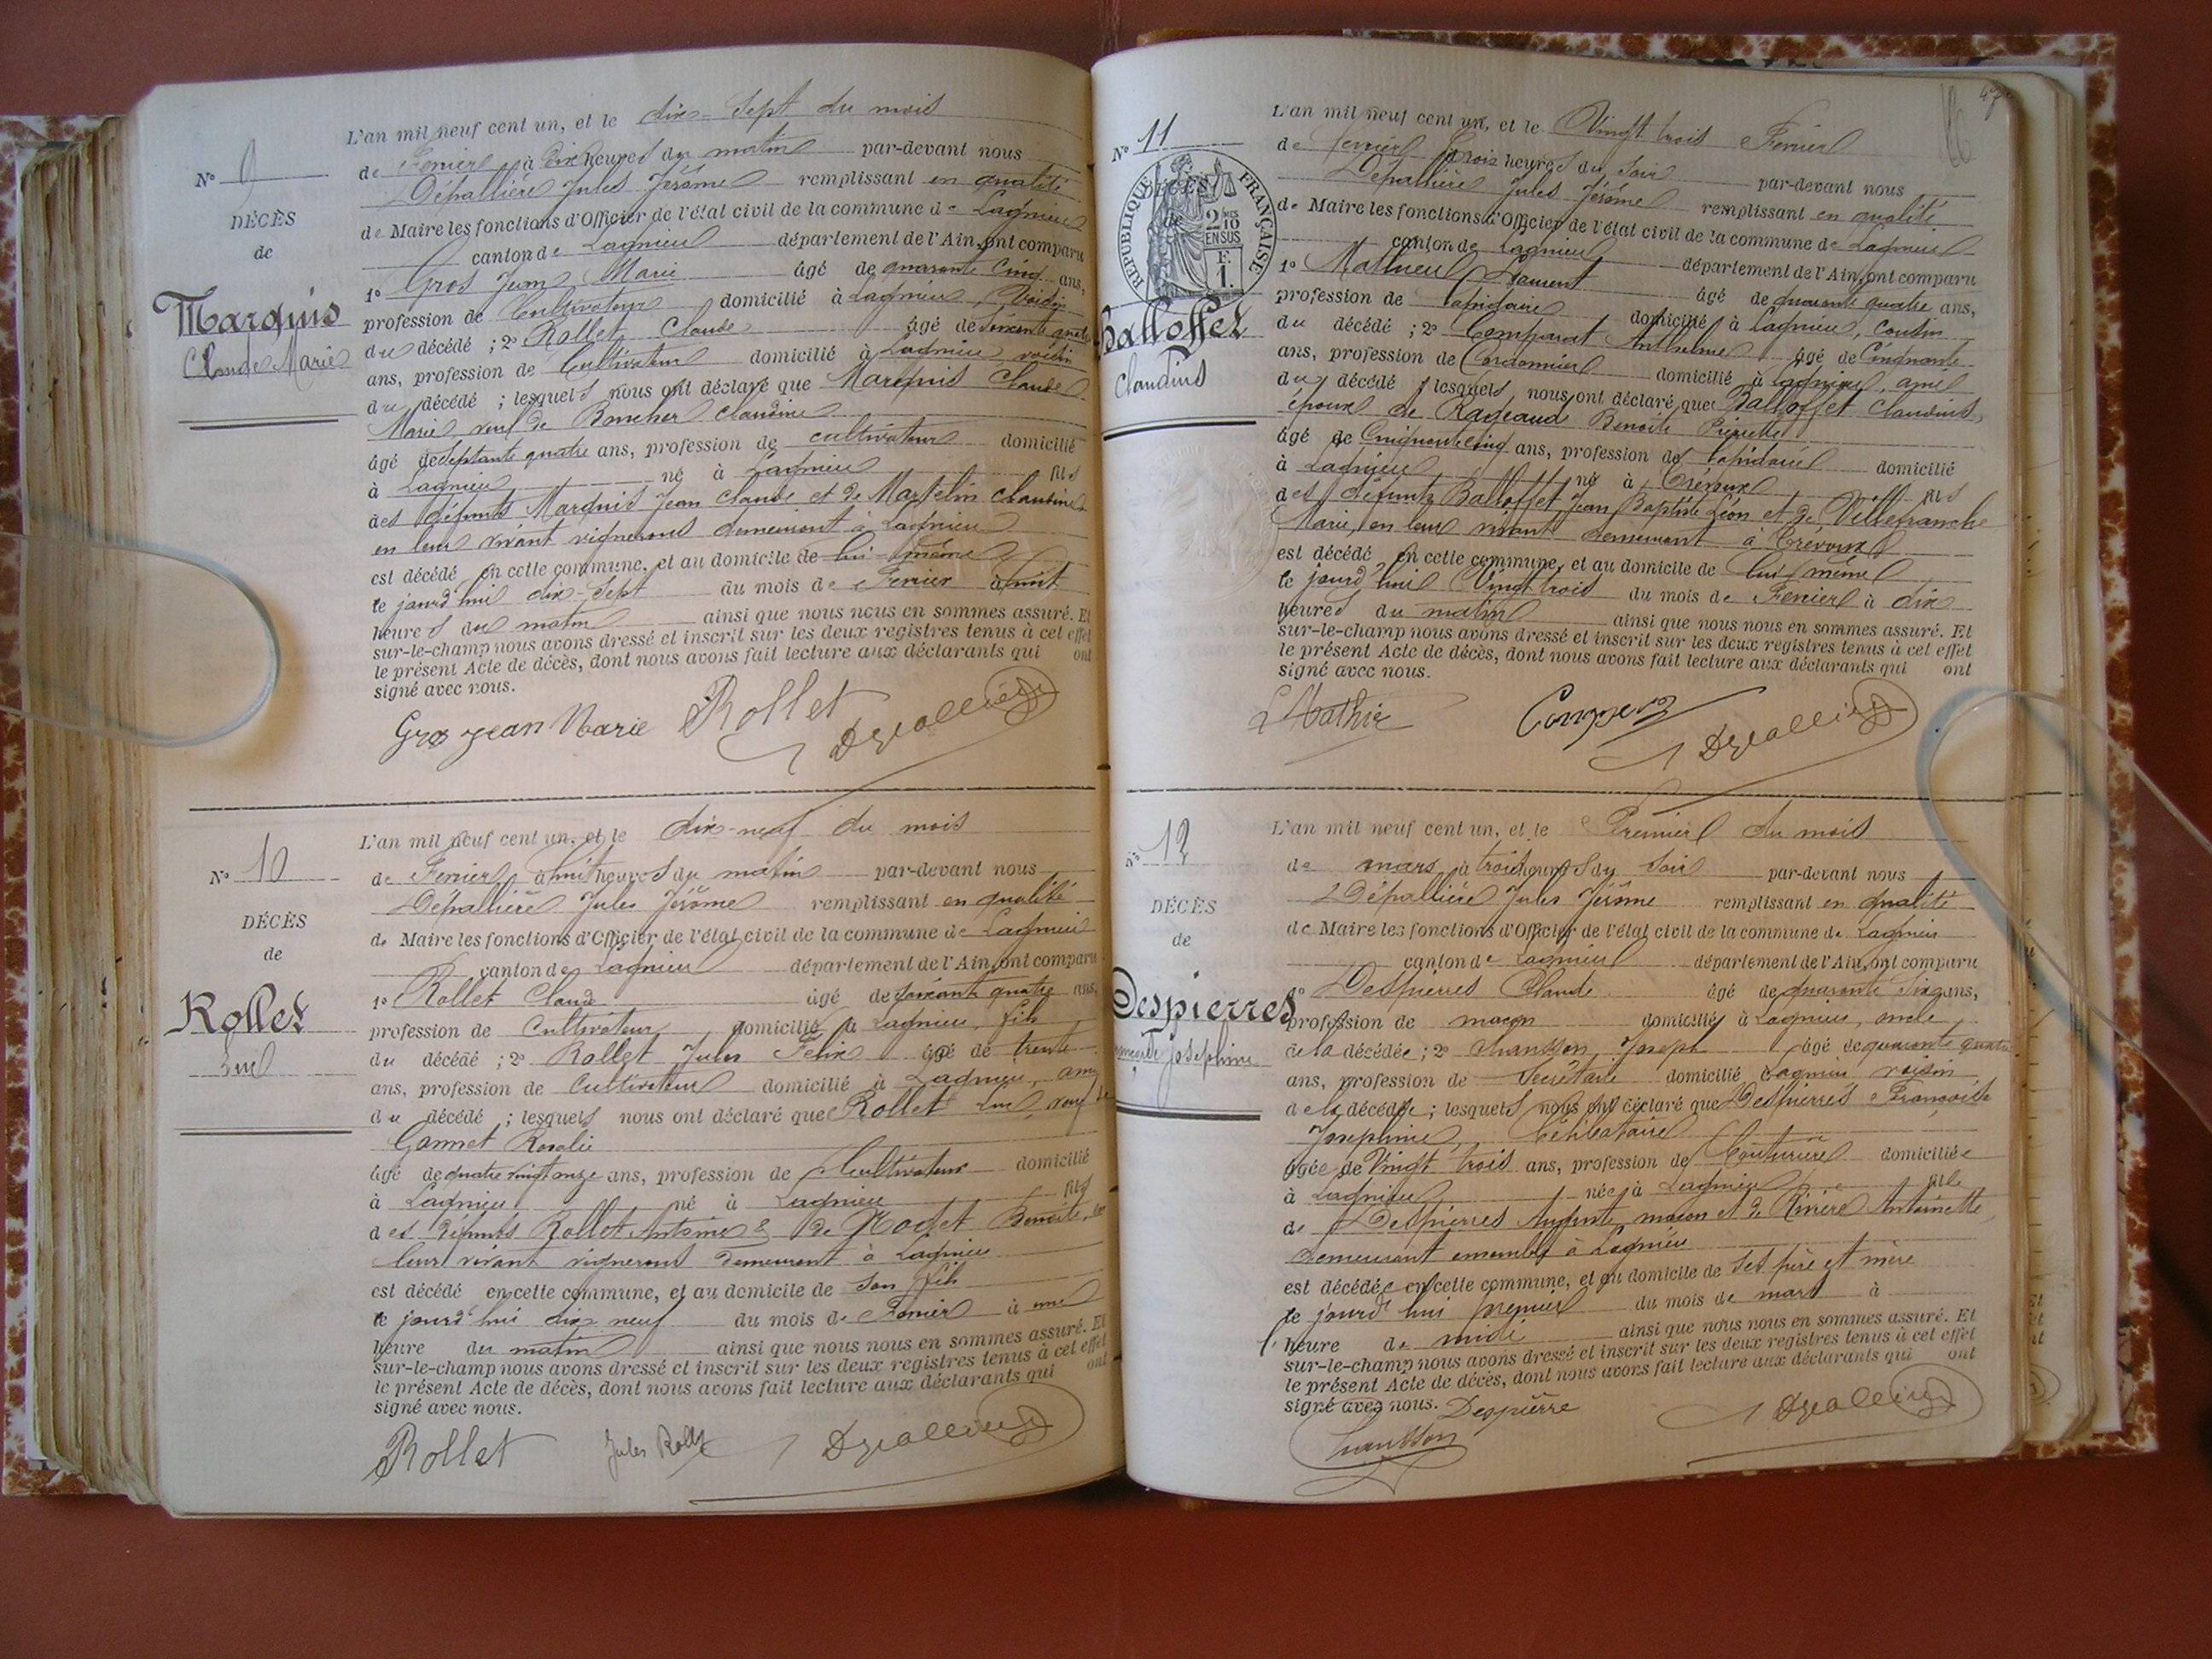 L'an mil neuf cent un, et le dix-sept du mois
N° 9
de Février à dix heures du matin par-devant nous
Dépallière Jules Jérôme remplissant en qualité
DÉCÈS
de Maire les fonctions d'Officier de l'état civil de la commune de Lagnieu
de
canton de Lagnieu département de l'Ain, ont comparu
1° Gros Jean Marie âgé de quarante cinq ans,
Marquis
profession de Cultivateur domicilié à Lagnieu, voisin
du décédé ; 2° Rollet Claude âgé de soixante quatre
Claude Marie
ans, profession de Cultivateur domicilié à Lagnieu voisin
du décédé ; lesquels nous ont déclaré que Marquis Claude
Marie veuf de Boucher Claudine
âgé de septante quatre ans, profession de cultivateur domicilié
à Lagnieu né à Lagnieu fils
des défunts Marquis Jean Claude et de Martelin Claudine
en leur vivant vignerons demeurant à Lagnieu
est décédé en cette commune, et au domicile de lui-même
le jourd'hui dix-sept du mois de Février à huit
heures du matin ainsi que nous nous en sommes assuré. Et
sur-le-champ nous avons dressé et inscrit sur les deux registres tenus à cet effet
le présent Acte de décès, dont nous avons fait lecture aux déclarants qui ont
signé avec nous.
Gros jean Marie Rollet Dépallière
L'an mil neuf cent un, et le dix-neuf du mois
N° 10
de Février à huit heures du matin par-devant nous
Dépallière Jules Jérôme remplissant en qualité
DÉCÈS
de Maire les fonctions d'Officier de l'état civil de la commune de Lagnieu
de
canton de Lagnieu département de l'Ain, ont comparu
1° Rollet Claude âgé de soixante quatre ans,
Rollet
profession de Cultivateur domicilié à Lagnieu, fils
Luc
du décédé ; 2° Rollet Jules Félix âgé de trente
ans, profession de Cultivateur domicilié à Lagnieu, ami
du décédé ; lesquels nous ont déclaré que Rollet Luc, veuf de
Gonnet Rosalie
âgé de quatre vingt onze ans, profession de Cultivateur domicilié
à Lagnieu né à Lagnieu fils
des défunts Rollet Antoine & de Benoite, en
leur vivant vignerons demeurant à Lagnieu
est décédé en cette commune, et au domicile de son fils
le jourd'hui dix neuf du mois de Février à une
heure du matin ainsi que nous nous en sommes assuré. Et
sur-le-champ nous avons dressé et inscrit sur les deux registres tenus à cet effet
le présent Acte de décès, dont nous avons fait lecture aux déclarants qui ont
signé avec nous.
Rollet Jules Rollet Dépallière
L'an mil neuf cent un, et le Vingt trois Février
N° 11
de Février à trois heures du soir par-devant nous
Dépallière Jules Jérôme remplissant en qualité
DÉCÈS
de
RÉPUBLIQUE FRANÇAISE
2/10 EN SUS
F. 1.
de Maire les fonctions d'Officier de l'état civil de la commune de Lagnieu
canton de Lagnieu département de l'Ain, ont comparu
1° Mathieu Laurent âgé de quarante quatre ans,
Balloffet
profession de Lapidaire domicilié à Lagnieu, cousin
Claudius
du décédé ; 2° Comparat Anthelme âgé de Cinquante
ans, profession de Cordonnier domicilié à Lagnieu, ami
du décédé lesquels nous ont déclaré que Balloffet Claudius,
époux de Rageaud Benoite Pierrette
âgé de Cinquante cinq ans, profession de lapidaire domicilié
à Lagnieu né à Trévoux fils
des défunts Balloffet Jean Baptiste Léon et de Villefranche
Marie, en leur vivant demeurant à Trévoux
est décédé en cette commune, et au domicile de lui-même
le jourd'hui Vingt trois du mois de Février à dix
heures du matin ainsi que nous nous en sommes assuré. Et
sur-le-champ nous avons dressé et inscrit sur les deux registres tenus à cet effet
le présent Acte de décès, dont nous avons fait lecture aux déclarants qui ont
signé avec nous.
L Mathie Dépallière
L'an mil neuf cent un, et le Premier du mois
N° 12
de mars à trois heures du soir par-devant nous
Dépallière Jules Jérôme remplissant en qualité
DÉCÈS
de Maire les fonctions d'Officier de l'état civil de la commune de Lagnieu
de
canton de Lagnieu département de l'Ain, ont comparu
1° Despierres Claude âgé de quarante six ans,
Despierres
profession de maçon domicilié à Lagnieu, oncle
Joséphine
de la décédée ; 2° Chansson Joseph âgé de quarante quatre
ans, profession de Secrétaire domicilié Lagnieu voisin
de la décédée ; lesquels nous ont déclaré que Despierres Françoise
Joséphine, Célibataire
âgée de Vingt trois ans, profession de Couturière domiciliée
à Lagnieu née à Lagnieu fille
de Despierres Auguste, maçon et de Rivière Antoinette,
demeurant ensemble à Lagnieu
est décédée en cette commune, et au domicile de ses père et mère
le jourd'hui premier du mois de mars à
heure de midi ainsi que nous nous en sommes assuré. Et
sur-le-champ nous avons dressé et inscrit sur les deux registres tenus à cet effet
le présent Acte de décès, dont nous avons fait lecture aux déclarants qui ont
signé avec nous. Despierre Dépallière
Chansson